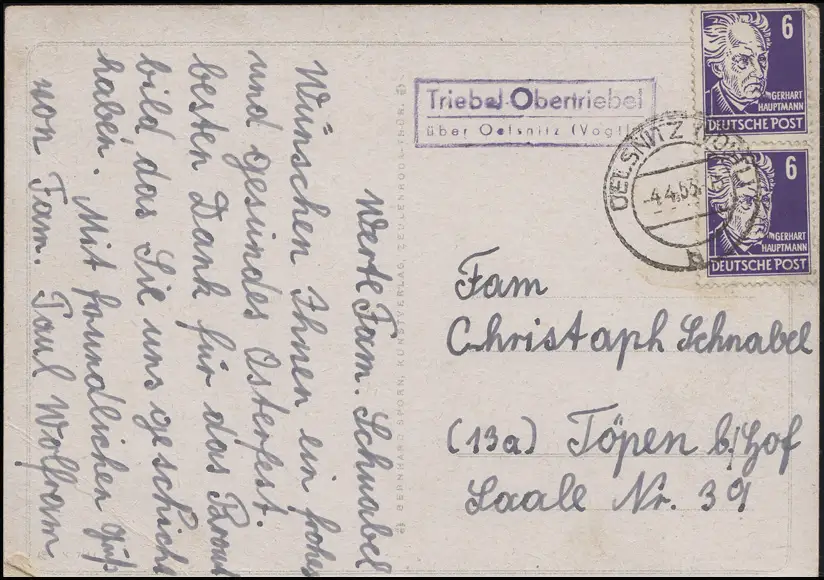 Werte Fam. Schnabel
Wünschen Ihnen ein frohes
und gesundes Osterfest.
besten Dank für das Braut
bild das Sie uns geschickt
haben. Mit freundlichen Gruß
von Fam. Paul Wolfram
BERNHARD SPORN, KUNSTVERLAG, ZEULENRODA-THÜR.
Triebel Obertriebel
über Oelsnitz (Vogtl
OELSNITZ (VOGTL)
-4.4.53
6
GERHART
HAUPTMANN
DEUTSCHE POST
6
GERHART
HAUPTMANN
DEUTSCHE POST
Fam
Christoph Schnabel
(13a) Töpen b/Hof
Saale Nr. 39